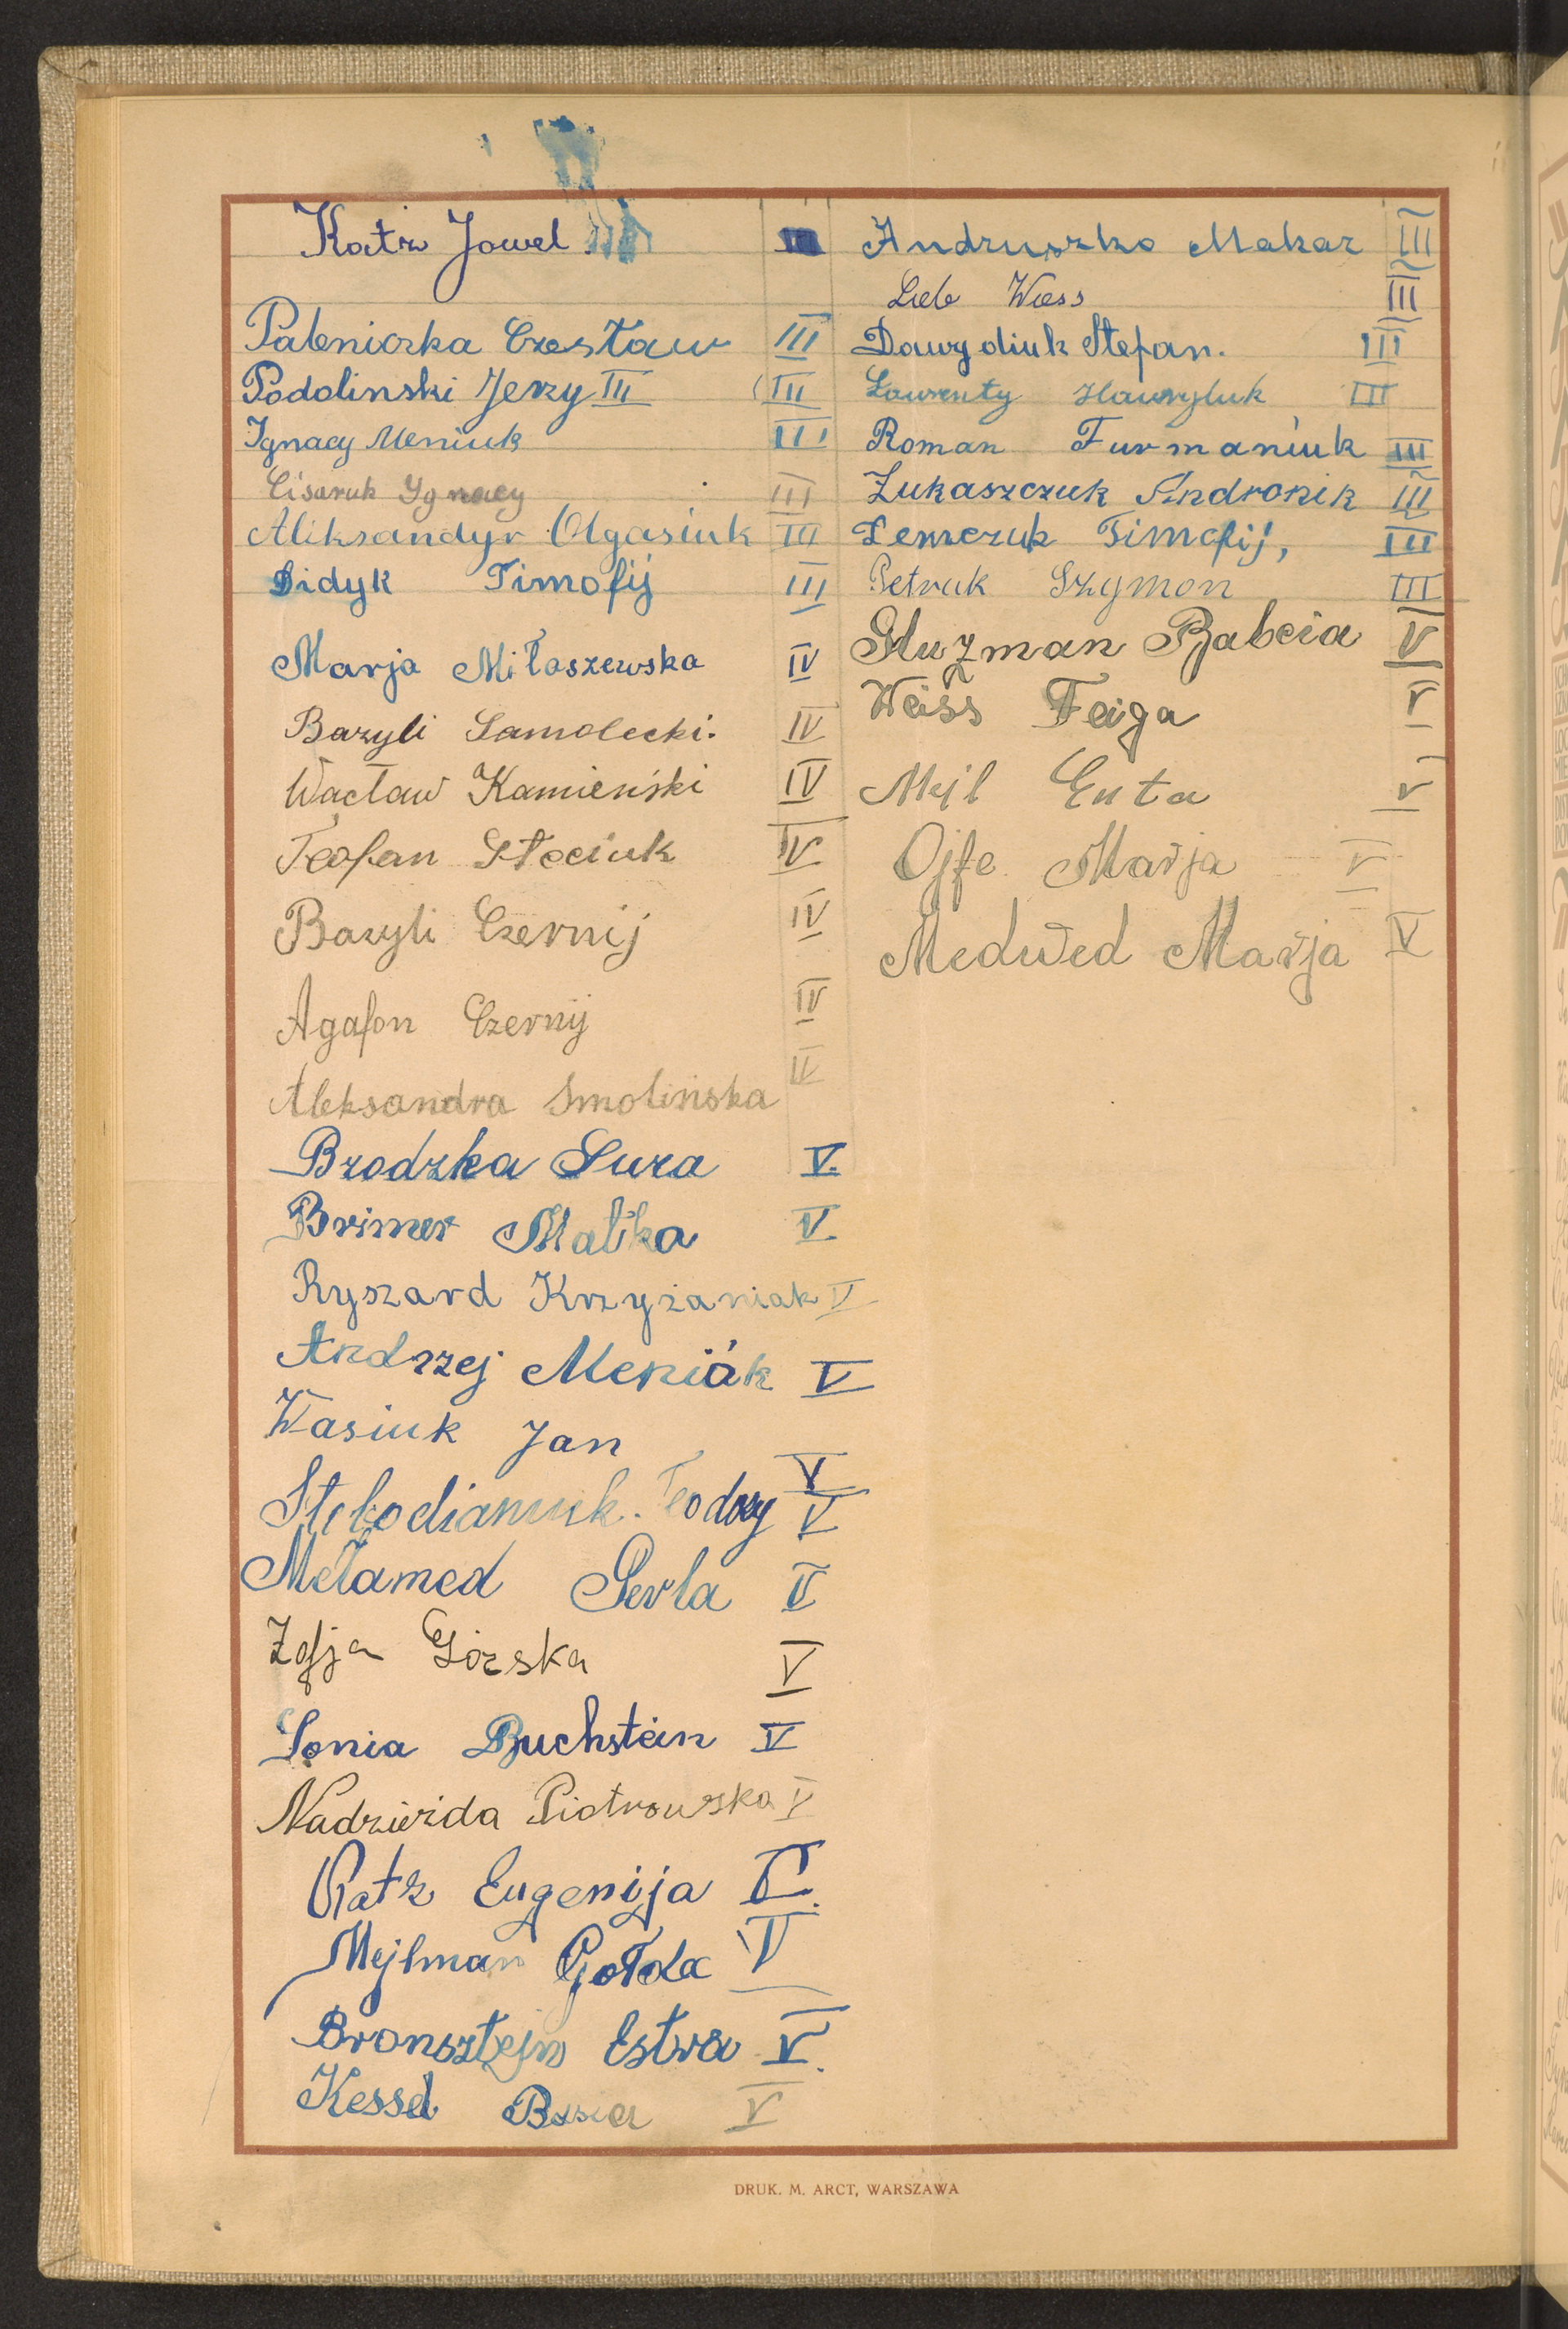 Katz Jowel III
Paleniczka Czesław III
Podolinski Jerzy III III
Ignacy Meniuk III
Cisaruk Ygnacy III
Aliksandyr Olgasiuk III
Didyk Timofij III
Marja Miłaszewska IV
Bazyli Samolecki. IV
Wacław Kamieński IV
Teofan Steciuk IV
Bazyli Czernij IV
Agafon Czernij IV
Aleksandra Smolińska IV
Brodzka Sura V.
Brimer Malka V
Ryszard Krzyżaniak V
Andrzej Meniuk V
Wasiuk Jan V
Teodozy V
Mełamed Perla V
Zofja Górska V
Sonia Buchstein V
Nadzieżda Piotrowska V
Katz Eugenija V.
Mejlman Gołda V
Bronsztejn Estra V.
Kessel V
Andruszko Makar III
Lieb Weiss III
Dawydiuk Stefan. III
Lawrenty Hawryluk III
Roman Furmaniuk III
Łukaszczuk Andronik III
Demczuk Timofij, III
Petruk Szymon III
Gluzman Babcia V
Weiss Feiga V
Mejl Guta V
Ojfe Marja V
Medwed Marja V
DRUK. M. ARCT, WARSZAWA